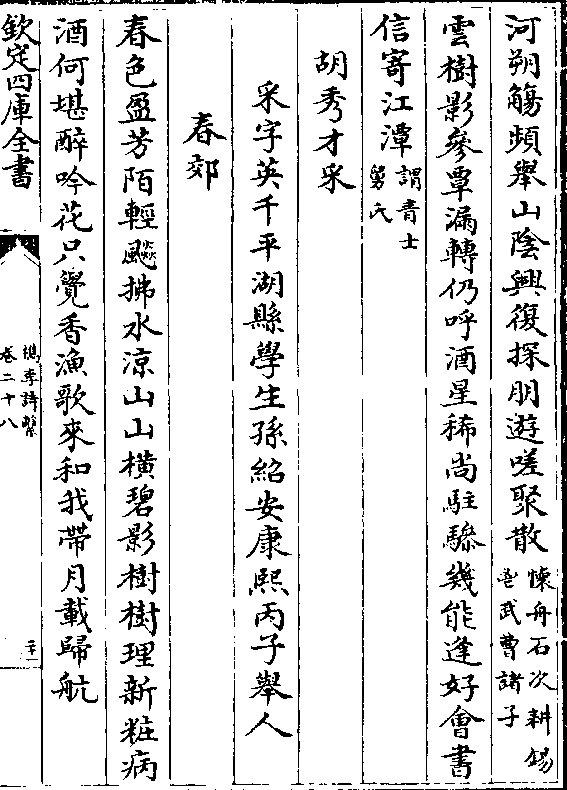 河朔觴頻舉山陰興復探朋遊嗟聚散懷舟石次耕錫
鬯武曹諸子
雲樹影參覃漏轉仍呼酒星稀尚駐驂幾能逢好會書
信寄江潭謂青士
舅氏
胡秀才采
采字英千平湖縣學生孫紹安康熙丙子舉人
春郊
春色盈芳陌輕颷拂水涼山山橫碧影樹樹理新粧病
酒何堪醉吟花只覺香漁歌來和我帶月載歸航
欽定四庫全書
檇李詩繫
卷二十八
二十一